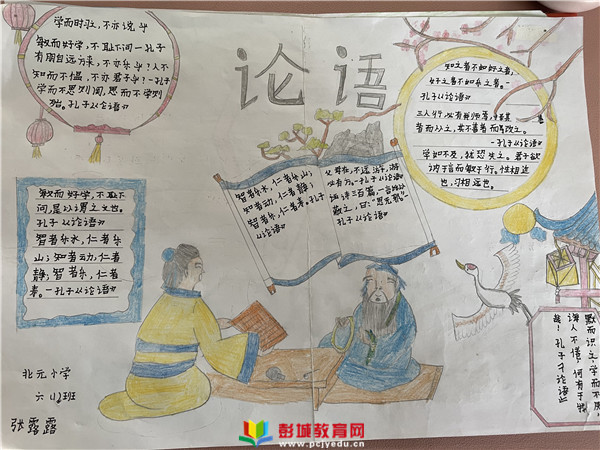 论语
学而时习，不亦说乎
敏而好学，不耻下问一孔子
有朋自远方来，不亦乐乎？人不
知而不愠，不亦君子乎？一孔子
学而不思则罔，思而不学则
殆。孔子《论语》
知之者不如好之者，
好之者不如乐之者。一
孔子《论语》
三人行，必有我师焉，择其善
者而从之，其不善者而改之。
一孔子《论语》
学如不及，犹恐失之。君子欲
讷于言而敏于行。性相近
也，习相远也。
敏而好学，不耻下
问，是以谓之文也。
孔子《论语》
智者乐水，仁者乐
山；知者动，仁者
静；智者乐，仁者
寿。一孔子《论语》
智者乐水，仁者乐山；
知者动，仁者静；
智者乐，仁者寿。孔子
《论语》
父母在，不远游，游
必有方。一孔子《论语》
诗三百篇，一言以
蔽之，曰：“思无邪”一
孔子《论语》
默而识之，学而不厌，
诲人不倦，何有于我
哉！孔子《论语》
北元小学
六（1）班
张露露
彭城教育网
www.pcjyedu.cn